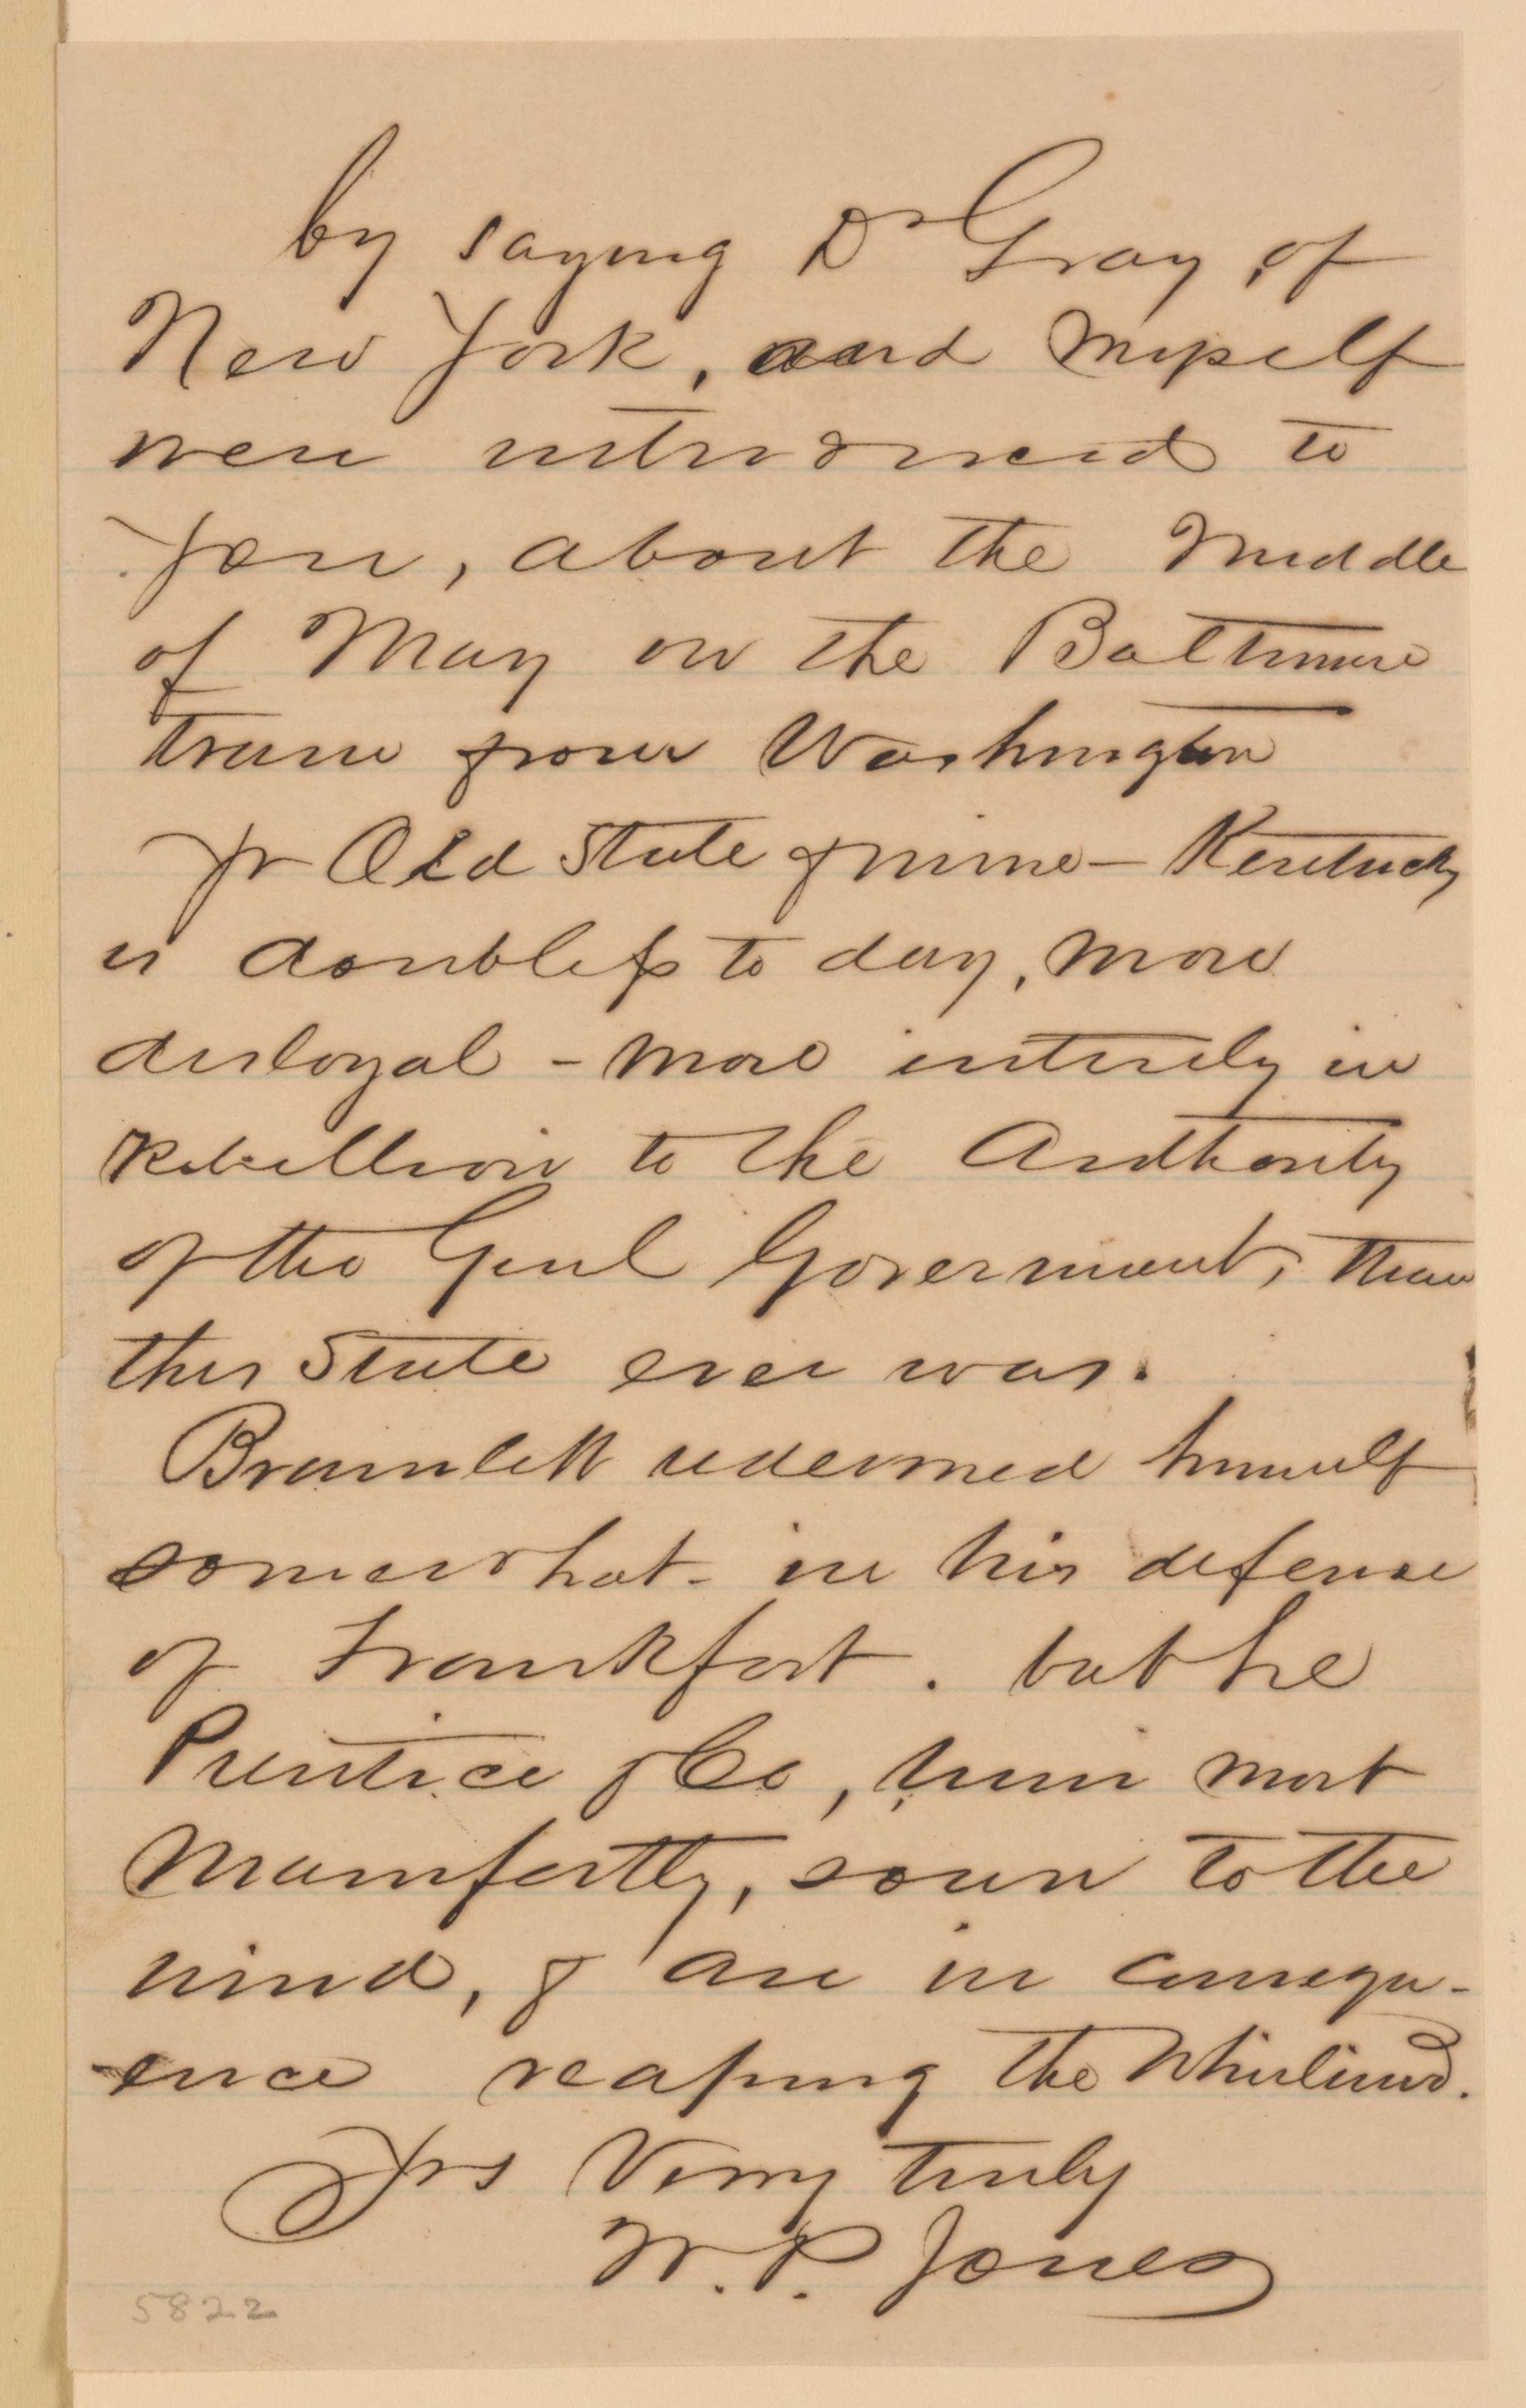 by saying Dr Gray, of
New York, and myself
were introduced to
you, about the middle
of May on the Baltimore
train from Washington
Yr Old State & mine - Kentucky
is doubless to day, more
disloyal - more entirely in
Rebellion to the Authority
of the Genl Goverment, than
this State ever was.
Bramlett redeemed himself
somewhat in his defense
of Frankfort. but he
Prentice & Co, have most
Manifestly, sown to the
wind, & are in consequ-
ence reaping the Whirlwind.
Yrs Very truly
W. P. Jones
5822